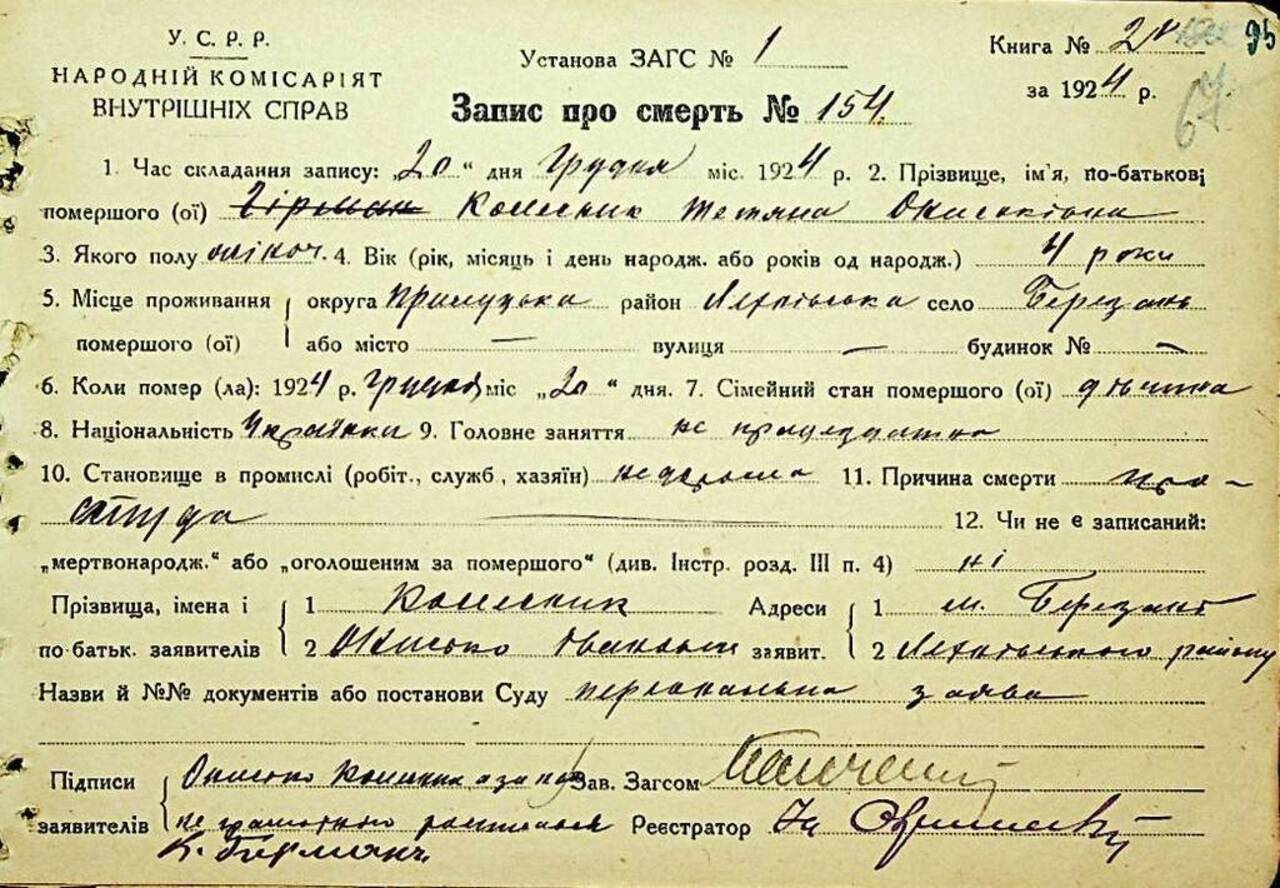 У. С. Р. Р.
НАРОДНІЙ КОМІСАРІЯТ
ВНУТРІШНІХ СПРАВ
Установа ЗАГС № 1
Книга № 2 95
за 1924 р. 67
Запис про смерть № 154.
1. Час складання запису: „20“ дня Грудня міс. 1924 р. 2. Прізвище, ім'я, по-батькові
помершого (ої) Гірман Колесник Тетяна Оксьонівна
3. Якого полу жіноч. 4. Вік (рік, місяць і день народж. або років од народж.) 4 роки
5. Місце проживання округа Прилуцька район село Березань
помершого (ої) або місто — вулиця — будинок № —
6. Коли помер (ла): 1924 р. Грудня міс „20“ дня. 7. Сімейний стан помершого (ої) дівчина
8. Національність Українка 9. Головне заняття не працездатна
10. Становище в промислі (робіт., служб., хазяїн) 11. Причина смерти про-
студа 12. Чи не є записаний:
„мертвонародж.“ або „оголошеним за помершого“ (див. Інстр. розд. III п. 4) ні
Прізвища, імена і 1 Колесник Адреси 1 м. Березань
по-батьк. заявителів 2 заявит. 2 району
Назви й №№ документів або постанови Суду персональна заява
Підписи Колесник а за його Зав. Загсом
заявителів не грамотного росписався Реєстратор
К. Гирман